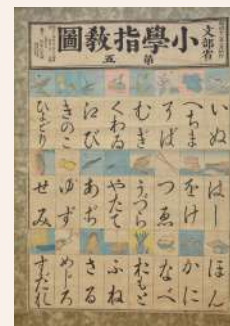 文部省
小學指教圖
第五
いぬ
へちま
そば
むぎ
くわゐ
えび
きのこ
ひよどり
はし
をけ
つゑ
うづら
やたて
あぢ
ゆず
せみ
ほん
かに
なべ
おもと
ふね
さる
めじろ
すだれ